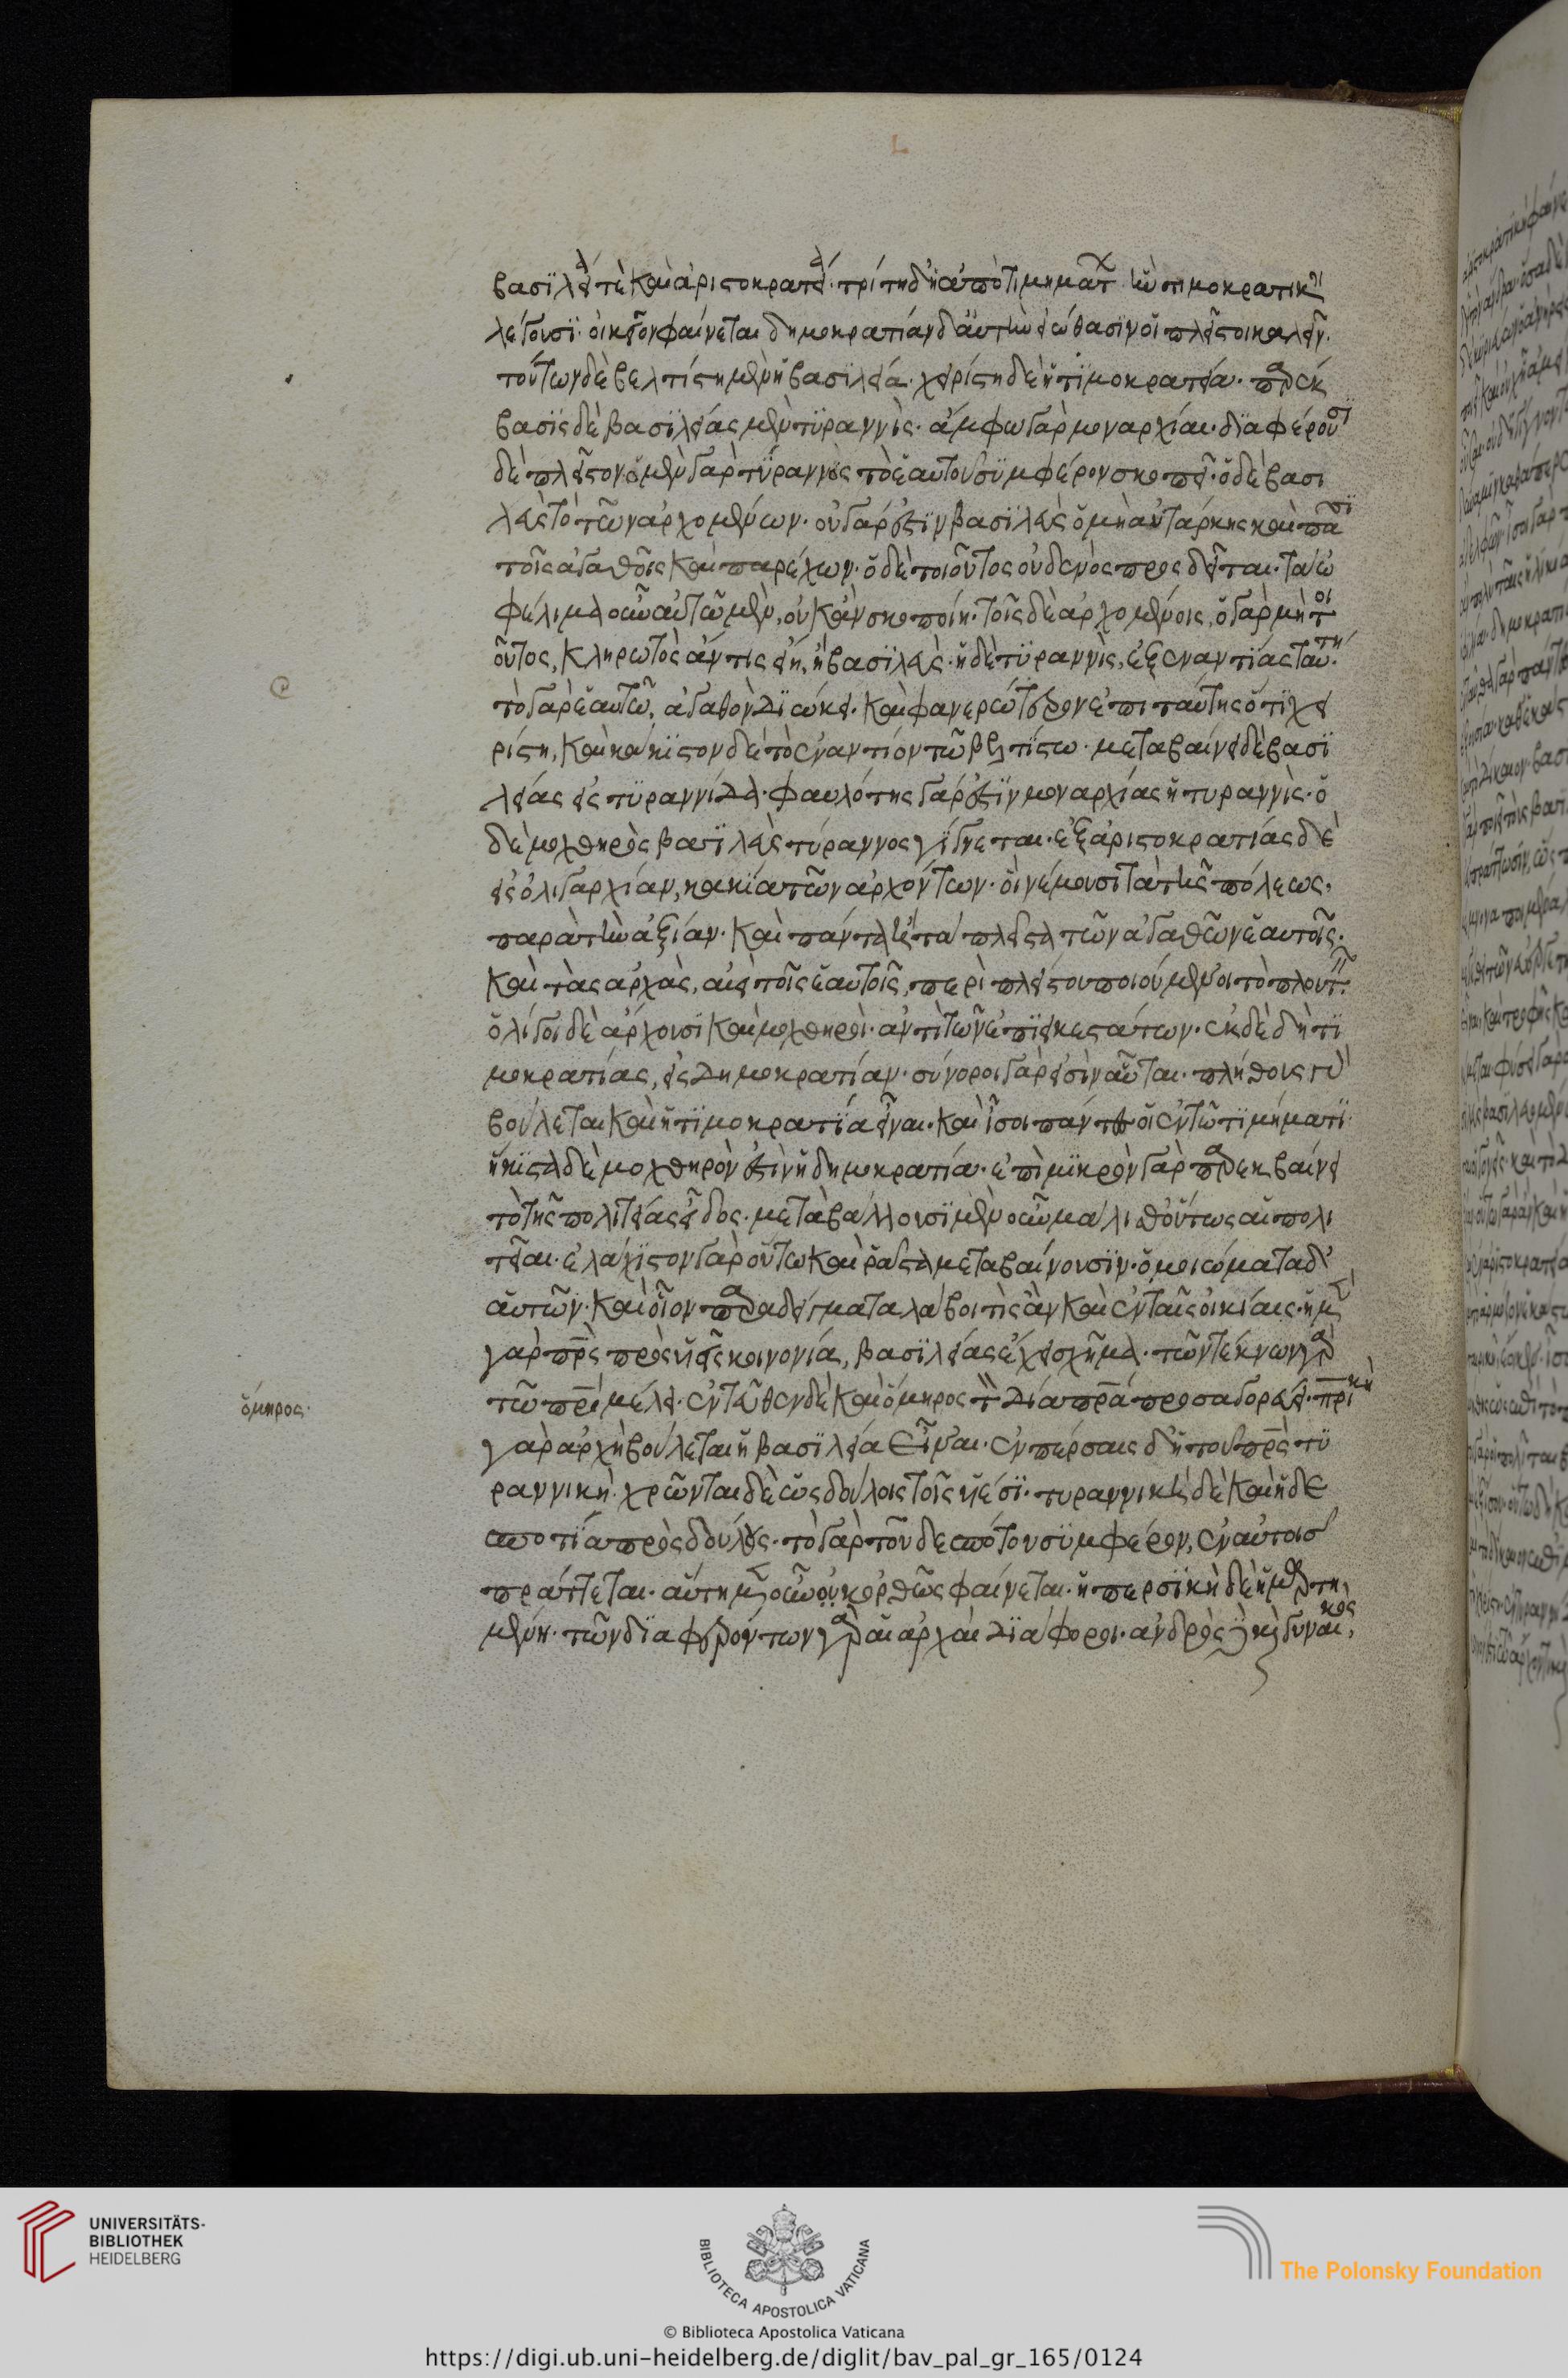 βασϊλεία τὲ καὶ ἀριστοκρατεία· τρίτη δ' ἡ ἀπὸ τιμημάτ ἣν τιμοκρατικὴ
λέγουσϊ· οἰκεῖον φαίνεται δημοκρατίαν δ' αὐτὴν εἰώθασϊν οἱ πλεῖστοι καλεῖν·
τούτων δὲ βελτίστη μὲν ἡ βασϊλεία· χειρίστη δὲ ἡ τϊμοκρατεία· παρεκ
βασϊς δὲ βασϊλείας μὲν τϋραννὶς· ἄμφω γὰρ μοναρχίαι· δϊαφέρουσϊ
δὲ πλεῖστον· ὁ μὲν γὰρ τϋραννος τὸ ἑαυτοῦ σϋμφέρον σκοπεῖ· ὁ δὲ βασι
λεὺς τὸ τῶν ἀρχομένων· οὐ γάρ ἐστϊν βασϊλεὺς ὁ μὴ αὐτάρκης καὶ πᾶσϊ
τοῖς ἀγαθοῖς καὶ παρέχων· ὁ δὲ τοιοῦτος οὐδενὸς προςδεῖται· τὰ ὠ
φέλιμα οὖν αὐτῶ μὲν, οὐκ ἂν σκοποίη· τοῖς δὲ ἀρχομένοις, ὁ γὰρ μὴ τοι
οῦτος, κληρωτὸς ἄν τις εἴη, ἢ βασϊλεὺς· ἡ δὲ τϋραννὶς, ἐξεναντίας ταύτη·
τὸ γὰρ ἑαυτῶ, ἀγαθὸν διώκει· καὶ φανερώτερον ἐπι ταύτης ὅτϊ χει
ρίστη, καὶ κάκϊστον δὲ τὸ ἐναντίον τῶ βελτίστω· μεταβαίνει δὲ βασϊ
λείας εἰς τϋραννίδα· φαυλότης γάρ ἐστϊν μοναρχίας ἡ τυραννὶς· ὁ
δὲ μοχθηρὸς βασϊλεὺς τύραννος γίγνεται· ἐξ ἀριστοκρατίας δὲ
εἰς ὀλιγαρχίαν, κακία τῶν ἀρχόντων· οἳ νέμουσι τὰ τῆς πόλεως,
παρὰ τὴν ἀξίαν· καὶ πάντα ἢ τὰ πλεῖστα τῶν ἀγαθῶν ἑαυτοῖς·
καὶ τὰς ἀρχὰς, αἰεὶ τοῖς ἑαυτοῖς, περὶ πλείστου ποιούμενοι τὸ πλουτεῖν·
ὀλίγοι δὲ ἄρχουσϊ καὶ μοχθηροὶ· ἀντὶ τῶν ἐπϊεικεστάτων· ἐκ δὲ δὴ τϊ
μοκρατίας, εἰς δημοκρατίαν· σύνοροι γάρ εἰσὶν αὗται· πλήθους γὰρ
βούλεται καὶ ἡ τϊμοκρατϊα εἶναι· καὶ ἴσοι πάντες οἱ ἐν τῶ τϊμήματϊ·
ἥκϊστα δὲ μοχθηρόν ἐστὶν ἡ δημοκρατία· ἐπὶ μϊκρὸν γὰρ παρεκβαίνει
τὸ τῆς πολιτείας εἶδος· μεταβάλλουσϊ μὲν οὖν μάλιθ' οὕτως αἱ πολι
τεῖαι· ἐλάχϊστον γὰρ οὕτω καὶ ῥᾶστα μεταβαίνουσϊν· ὁμοιώματα δ'
αὐτῶν· καὶ οἷον παραδείγματα λάβοι τὶς ἂν καὶ ἐν ταῖς οἰκίαις· ἡ μὲν
γὰρ πρς πρὸς υἱεῖς κοινονία, βασϊλείας ἔχει σχῆμα· τῶν τέκνων γὰρ
τῶ πρι μέλει· ἐντεῦθεν δὲ καὶ ὅμηρος τὸν δία πρα προσαγορεύει· πρικὴ
γὰρ ἀρχὴ βούλεται ἡ βασϊλεία εἶναι· ἐν πέρσαις δ' ἡ τοῦ πρς τϋ
ραννικὴ· χρῶνται δὲ ὡς δούλοις τοῖς υἱέσϊ· τυραννικὴ δὲ καὶ ἡ δε
σποτία πρὸς δούλους· τὸ γὰρ τοῦ δεσπότου σϋμφέρον, ἐν αὐτοῖσ
πράττεται· αὕτη μὲν οὖν οὐκ ὀρθῶς φαίνεται· ἡ περσϊκὴ δὲ ἡμαρτη
μένη· τῶν δϊαφερόντων γὰρ αἱ ἀρχαὶ διάφοροι· ἀνδρὸς δὲ καὶ γυναικὸς,
ὅμηρος·
UNIVERSITÄTS-
BIBLIOTHEK
HEIDELBERG
BIBLIOTECA APOSTOLICA VATICANA
The Polonsky Foundation
© Biblioteca Apostolica Vaticana
https://digi.ub.uni-heidelberg.de/diglit/bav_pal_gr_165/0124